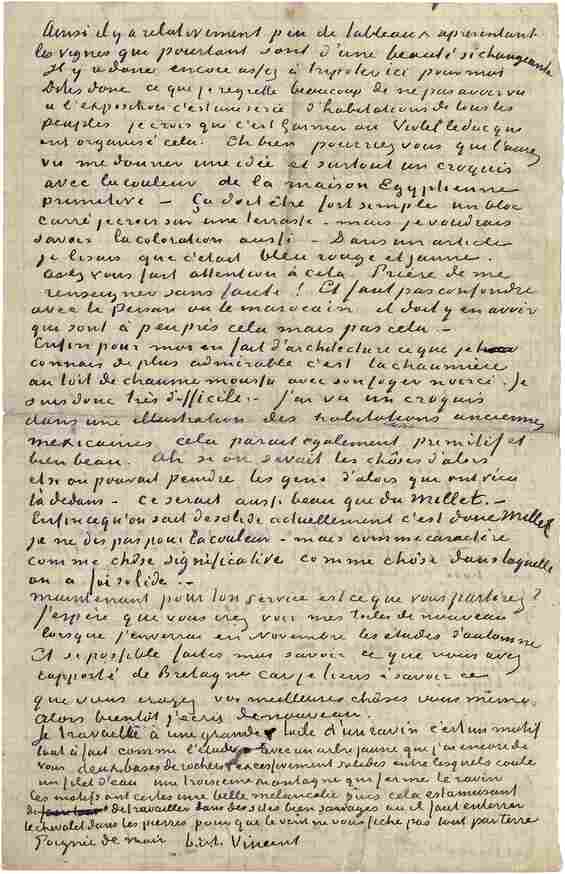 Ainsi il y a relativement peu de tableaux représentant
les vignes qui pourtant sont d'une beauté si changeante
Il y a donc encore assez à tripoter ici pour moi
Dites donc ce que je regrette beaucoup de ne pas avoir vu
à l'exposition c'est une serie d'habitations de tous les
peuples je crois que c'est Garnier ou Violet leduc qui
ont organisé cela. Eh bien pourriez vous qui l'aurez
vu me donner une idée et surtout un croquis
avec la couleur de la maison Egyptienne
primitive – Ça doit être fort simple un bloc
carré je crois sur une terrasse – mais je voudrais
savoir la coloration aussi – Dans un article
je lisais que c'etait bleu rouge et jaune.
avez vous fait attention à cela. Prière de me
renseigner sans faute! Et faut pas confondre
avec le Persan ou le marocain il doit y en avoir
qui sont à peu près cela mais pas cela. –
Enfin pour moi en fait d'architecture ce que je
connais de plus admirable c'est la chaumière
au toit de chaume moussu avec son foyer noirci. Je
suis donc très difficile. – j'ai vu un croquis
dans une illustration des habitations anciennes
mexicaines cela parait egalement primitif et
bien beau. Ah si on savait les chôses d'alors
et si on pouvait peindre les gens d'alors qui ont vécu
là dedans – ce serait aussi beau que du Millet. –
Enfin ce qu'on sait de solide actuellement c'est donc Millet
je ne dis pas pour la couleur – mais comme caractère
comme chôse significative comme chôse dans laquelle
on a foi solide. –
maintenant pour ton service est ce que vous partirez?
J'espère que vous irez voir mes toiles de nouveau
lorsque j'enverrai en Novembre les etudes d'automne
Et si possible faites moi savoir ce que vous avez
rapporté de Bretagne car je tiens à savoir ce
que vous croyez vos meilleures chôses vous même.
alors bientôt j'ecris de nouveau.
Je travaille à une grande toile d'un ravin c'est un motif
tout à fait comme l'etude avec un arbre jaune que j'ai encore de
vous deux bases de rochers excessivement solides entre lesquels coule
un filet d'eau une troisieme montagne qui ferme le ravin
Ces motifs ont certes une belle melancolie puis cela est amusant
de travailler dans des sites bien sauvages où il faut enterrer
le chevalet dans les pierres pour que le vent ne vous fiche pas tout par terre
Poignée de main t. à t. Vincent